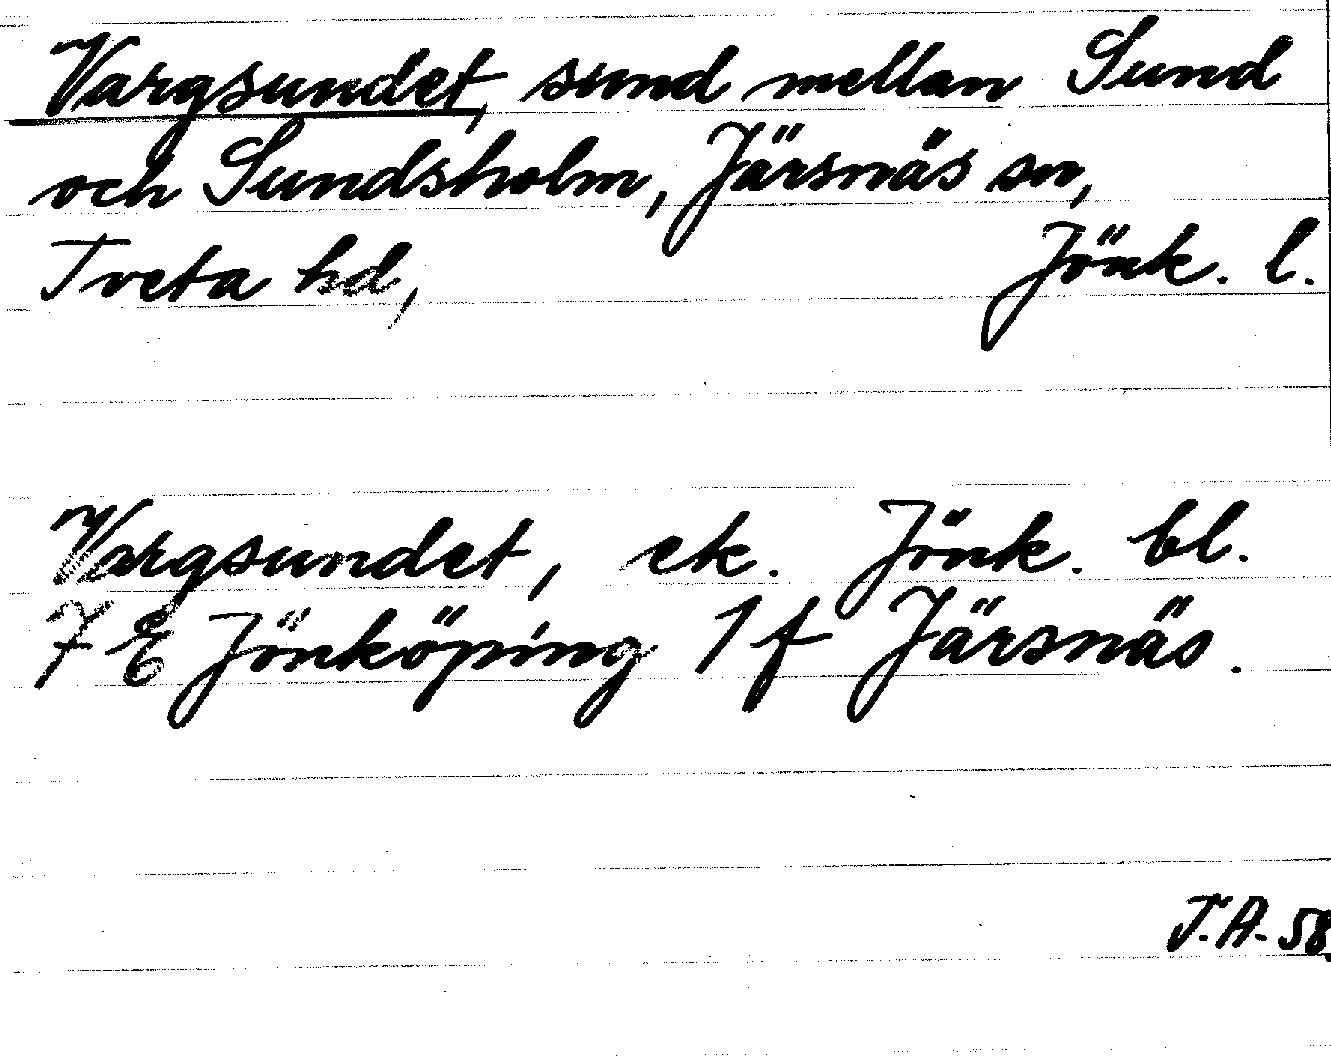 Vargsundet, sund mellan Sund
och Sundsholm, Järsnäs sn,
Tveta hd, Jönk. l.
Vargsundet, ek. Jönk. bl.
7 E Jönköping 1 f Järsnäs.
J.A. 58